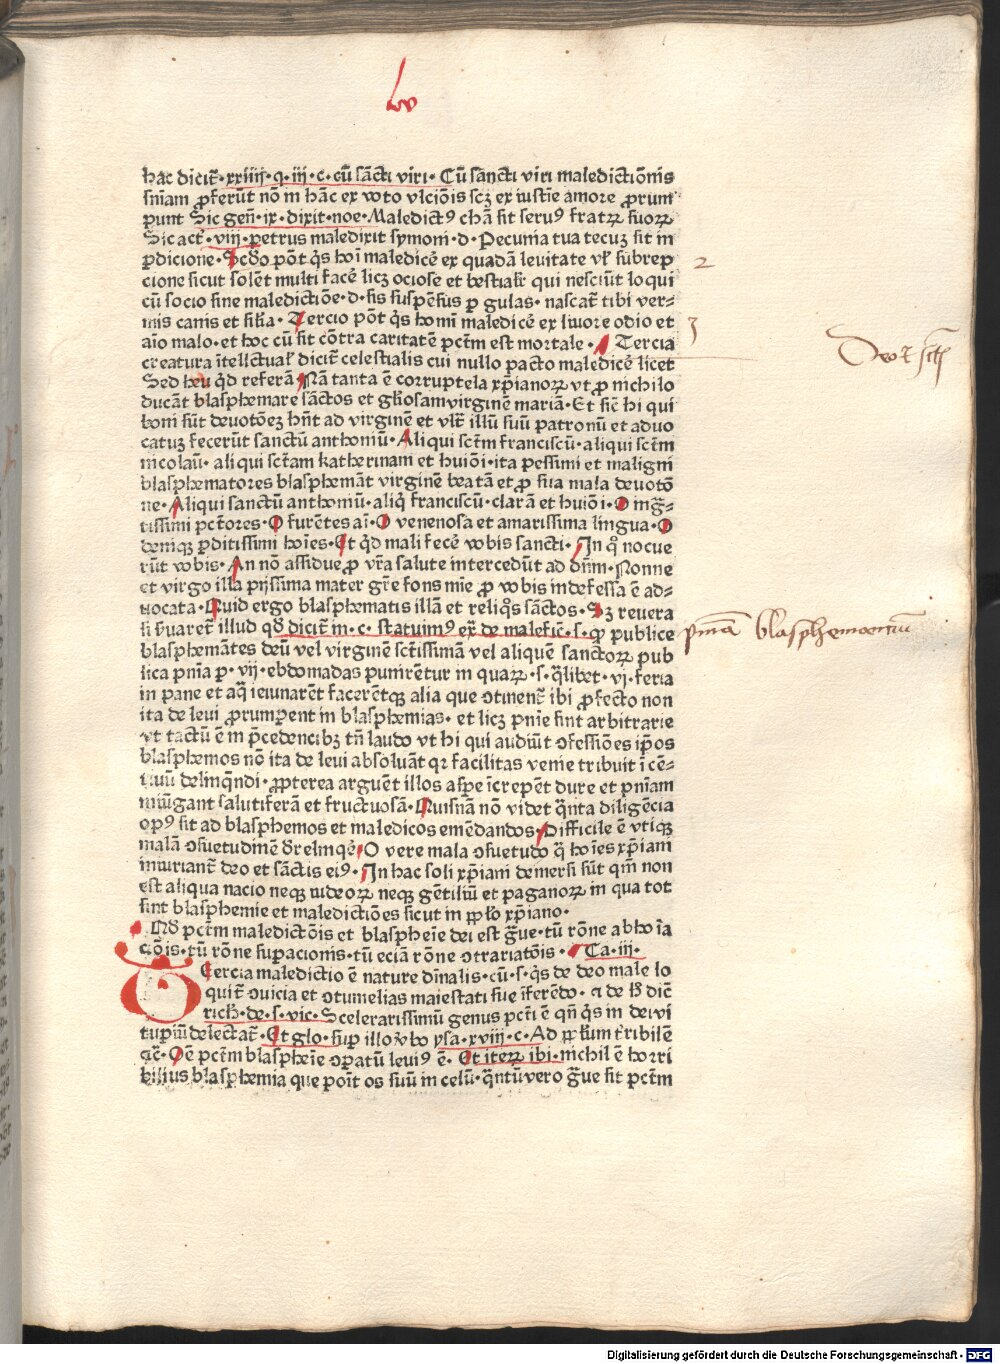 lv
hac dicit᷑·xxiiij·q·iij·c·cū sācti viri·Cū sancti viri maledictiōnis
s̄niam ꝓferūt nō in hāc ex voto vlciōis scꝫ ex iusticie amore ꝓrum
punt Sic geñ·ix·dixit·noe·Maledictꝰ chā sit seruꝰ fratꝝ suoꝝ
Sic act᷑·viij·petrus maledixit symoni·d·Pecunia tua tecuꝫ sit in
ꝑdicione·Scd̄o pōt q̇s hoī maledicē ex quadā leuitate vl᷑ subrep
cione sicut solēt multi facē licꝫ ociose et bestialr̄ qui nesciūt loqui
cū socio sine maledictiōe·d·sis suspēsus ꝑ gulas·nascat᷑ tibi ver⸗
mis canis et silia·Tercio pōt q̇s homī maledicē ex liuore odio et
aīo malo·et hoc cū sit cōtra caritatē pctm̄ est mortale·Tercia
creatura ītellectual᷑ dicit᷑ celestialis cui nullo pacto maledicē licet
Sed heu qd̄ referā·Nā tanta ē corruptela xp̄ianoꝝ vt ꝓ nichilo
ducāt blasphemare sāctos et gl̄iosam virginē mariā·Et sic̄ hi qui
boni sūt deuotōeꝫ hn̄t ad virginē et vlr̄ illū suū patronū et aduo
catuꝫ fecerūt sanctū anthoniū·Aliqui sctm̄ franciscū·aliqui sctm̄
nicolaū·aliqui sctam katherinam et huiōi·ita pessimi et maligni
blasphematores blasphemāt virginē beatā et ꝓ sua mala deuotō
ne·Aliqui sanctū anthoniū·aliq̇ franciscū·clarā et huiōi·O ingᷓ⸗
tissimi pctōres·O furētes aī·O venenosa et amarissima lingua·O
deniqꝫ ꝑditissimi hoīes·Et qd̄ mali fecē vobis sancti·In qͦ nocue
rūt vobis·An nō assidue ꝓ vr̄a salute intercedūt ad dn̄m·Nonne
et virgo illa pijssima mater gr̄e fons mīe ꝓ vobis indefessa ē ad⸗
uocata·Quid ergo blasphematis illā et reliqͦs sāctos·Sꝫ reuera
si ẜuaret᷑ illud qd̄ dicit᷑ in·c·statuimꝰ ex᷑ de malefic̄·s·ꝙ publice
blasphemātes deū vel virginē sctissimā vel aliquē sanctoꝝ pub
lica pnīa ꝑ·vij·ebdomadas punirētur in quaꝝ·s·q̄libet·vj·feria
in pane et aq̄ ieiunarēt facerētqꝫ alia que ꝯtinent᷑ ibi ꝓfecto non
ita de leui ꝓrumꝑent in blasphemias·et licꝫ pnīe sint arbitrarie
vt tactū ē in p̄cedencibꝫ tn̄ laudo vt hi qui audiūt ꝯfessiōes ip̄os
blasphemos nō ita de leui absoluāt qꝛ facilitas venie tribuit īcē⸗
tiuū delinqͣndi·ꝓpterea arguēt illos asꝑe īcrepēt dure et pnīam
iniūgant salutiferā et fructuosā·Quisnā nō videt qͣnta diligēcia
opꝰ sit ad blasphemos et maledicos emēdandos·Difficile ē vtiqꝫ
malā ꝯsuetudinē d̓relinqē·O vere mala ꝯsuetudo qᷓ hoīes xp̄iani
iniuriant᷑ deo et sāctis eiꝰ·In hac soli xp̄iani demersi sūt qm̄ non
est aliqua nacio neqꝫ iudeoꝝ neqꝫ gētiliū et paganoꝝ in qua tot
sint blasphemie et maledictiōes sicut in ppl̄o xp̄iano·
Qd̄ pctm̄ maledictōis et blasphēie dei est gᷓue·tū rōne abhoīa
ciōis·tū rōne suꝑacionis·tū eciā rōne ꝯtrariatōis·Ca·iij·
Tercia maledictio ē nature diuīalis·cū·s·q̇s de deo male lo
quit᷑ ꝯuicia et ꝯtumelias maiestati sue īferēdo·⁊ de hͦ dic̄
rich·de·s·vic·Scelerarissimū genus pcti ē qn̄ q̇s in dei vi
tuꝑiū delectat᷑·Et glo·suꝑ illo v̓bo ysa·xviij·c·Ad ppl̄um t᷑ribilē
⁊c̄·Oē pctm̄ blasphēie ꝯꝑatū leuiꝰ ē·Et iteꝝ ibi·nichil ē horri
bilius blasphemia que poīt os suū in celū·qͣntū vero gᷓue sit pctm̄
2
3
pena blasphemancium
Digitalisierung gefördert durch die Deutsche Forschungsgemeinschaft · DFG